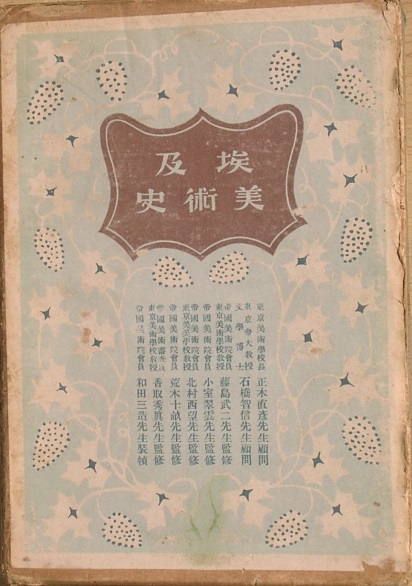 埃及
美術史
東京美術學校長 正木直彥先生顧問
東京帝大教授 文學博士 石橋智信先生顧問
帝國美術院會員 東京美術學校教授 藤島武二先生監修
帝國美術院會員 小室翠雲先生監修
帝國美術院會員 東京美術學校教授 北村西望先生監修
帝國美術院會員 荒木十畝先生監修
東京美術學校教授 香取秀眞先生監修
帝國美術院會員 和田三造先生裝幀